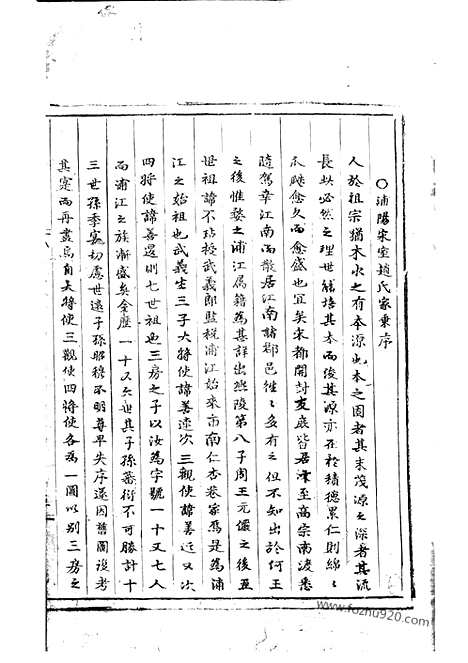 ○浦陽宋室趙氏家乘序
人於祖宗猶木水之有本源也本之固者其末茂源之深者其流
長此必然之理世能培其本而浚其源亦在於積德累仁則綿綿
瓜瓞愈久而愈盛也宜矣宋都開封支庶皆居汴至高宗南渡悉
隨駕幸江南而散居江南諸郡邑徃徃多有之但不知出於何王
之後惟婺之浦江屬籍為甚詳出熙陵第八子周王元儼之後五
世祖諱不玷授武義郎監税浦江始來市南仁杏巷家焉是為浦
江之始祖也武義生三子大將使諱善逵次三觀使諱善近又次
四將使諱善還則七世祖也三房之子以汝為字號一十又七人
而浦江之族漸盛矣今歷一十又六世其子孫蕃衍不可勝計十
三世孫季寔切慮世遠子孫昭穆不明尊卑失序遂因舊圖復考
其寔而再畫焉自大將使三觀使四將使各為一圖以別三房之
www.fozhu920.com